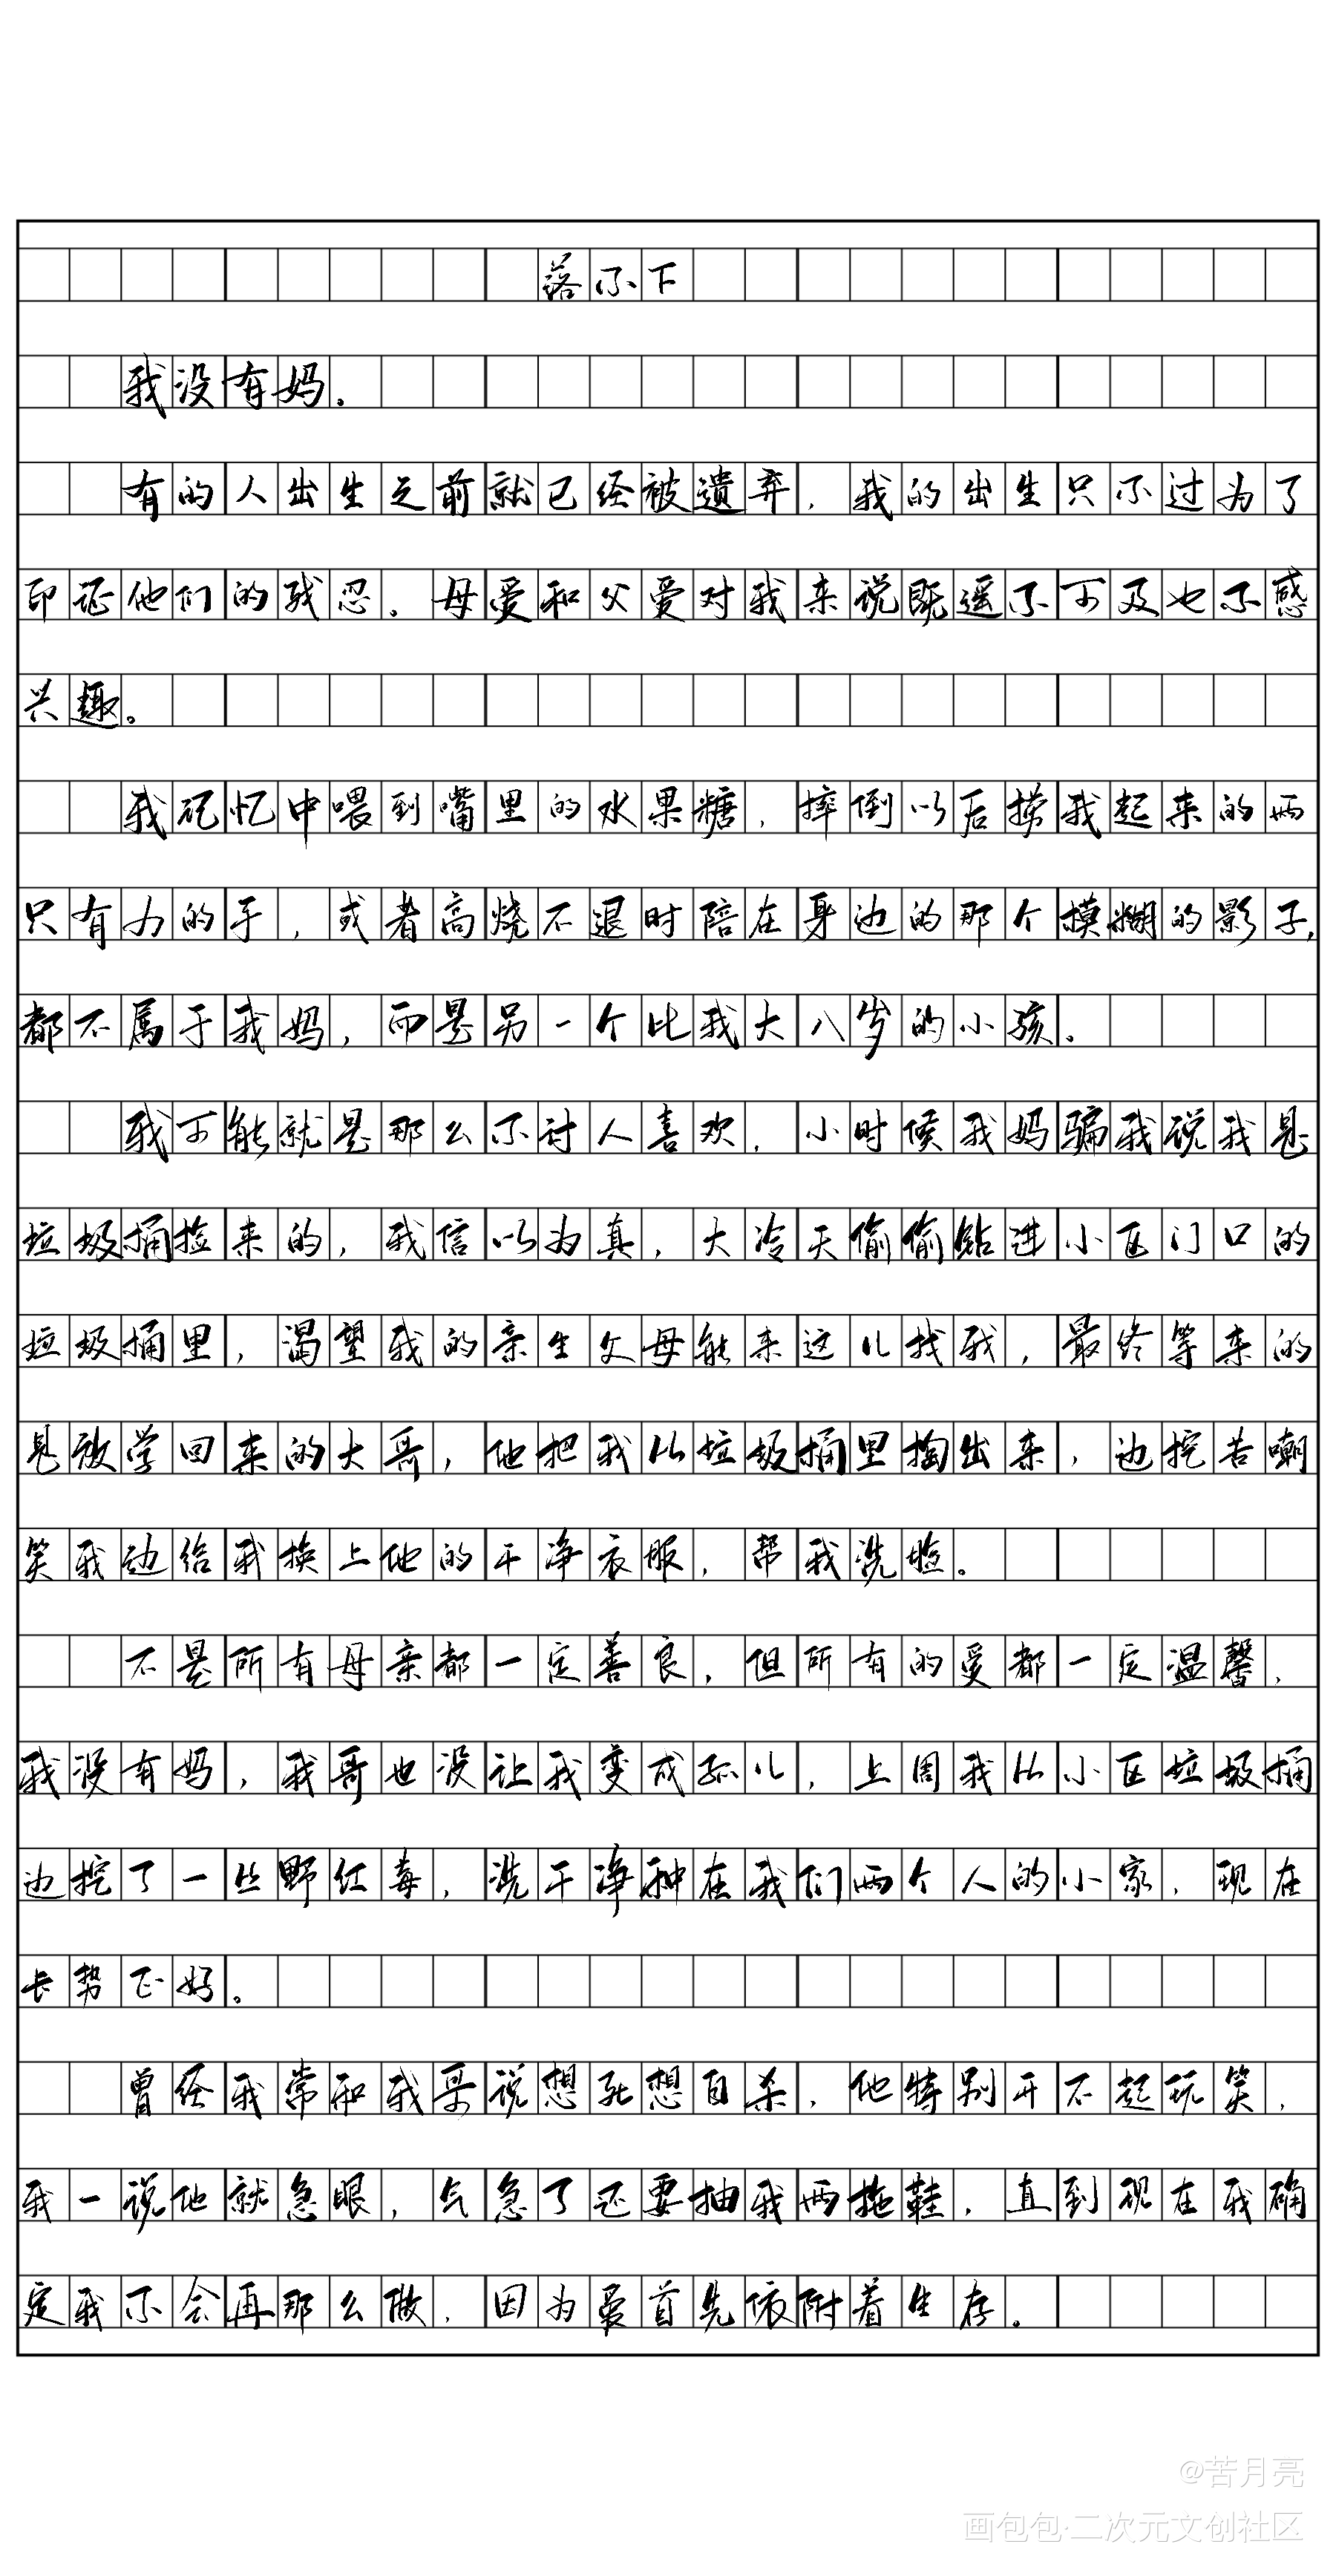 落不下
我没有妈.
有的人出生之前就已经被遗弃,我的出生只不过为了
印证他们的残忍。母爱和父爱对我来说既遥不可及也不感
兴趣。
我记忆中喂到嘴里的水果糖,摔倒以后捞我起来的两
只有力的手,或者高烧不退时陪在身边的那个模糊的影子,
都不属于我妈,而是另一个比我大八岁的小孩。
我可能就是那么不讨人喜欢,小时候我妈骗我说我是
垃圾桶捡来的,我信以为真,大冷天偷偷钻进小区门口的
垃圾桶里,渴望我的亲生父母能来这儿找我,最终等来的
是放学回来的大哥,他把我从垃圾桶里掏出来,边挖苦嘲
笑我边给我换上他的干净衣服,帮我洗脸。
不是所有母亲都一定善良,但所有的爱都一定温馨,
我没有妈,我哥也没让我变成孤儿,上周我从小区垃圾桶
边挖了一丛野红莓,洗干净种在我们两个人的小家,现在
长势正好。
曾经我常和我哥说想死想自杀,他特别开不起玩笑,
我一说他就急眼,气急了还要抽我两拖鞋,直到现在我确
定我不会再那么做,因为爱首先依附着生存。
@苦月亮
画包包·二次元文创社区